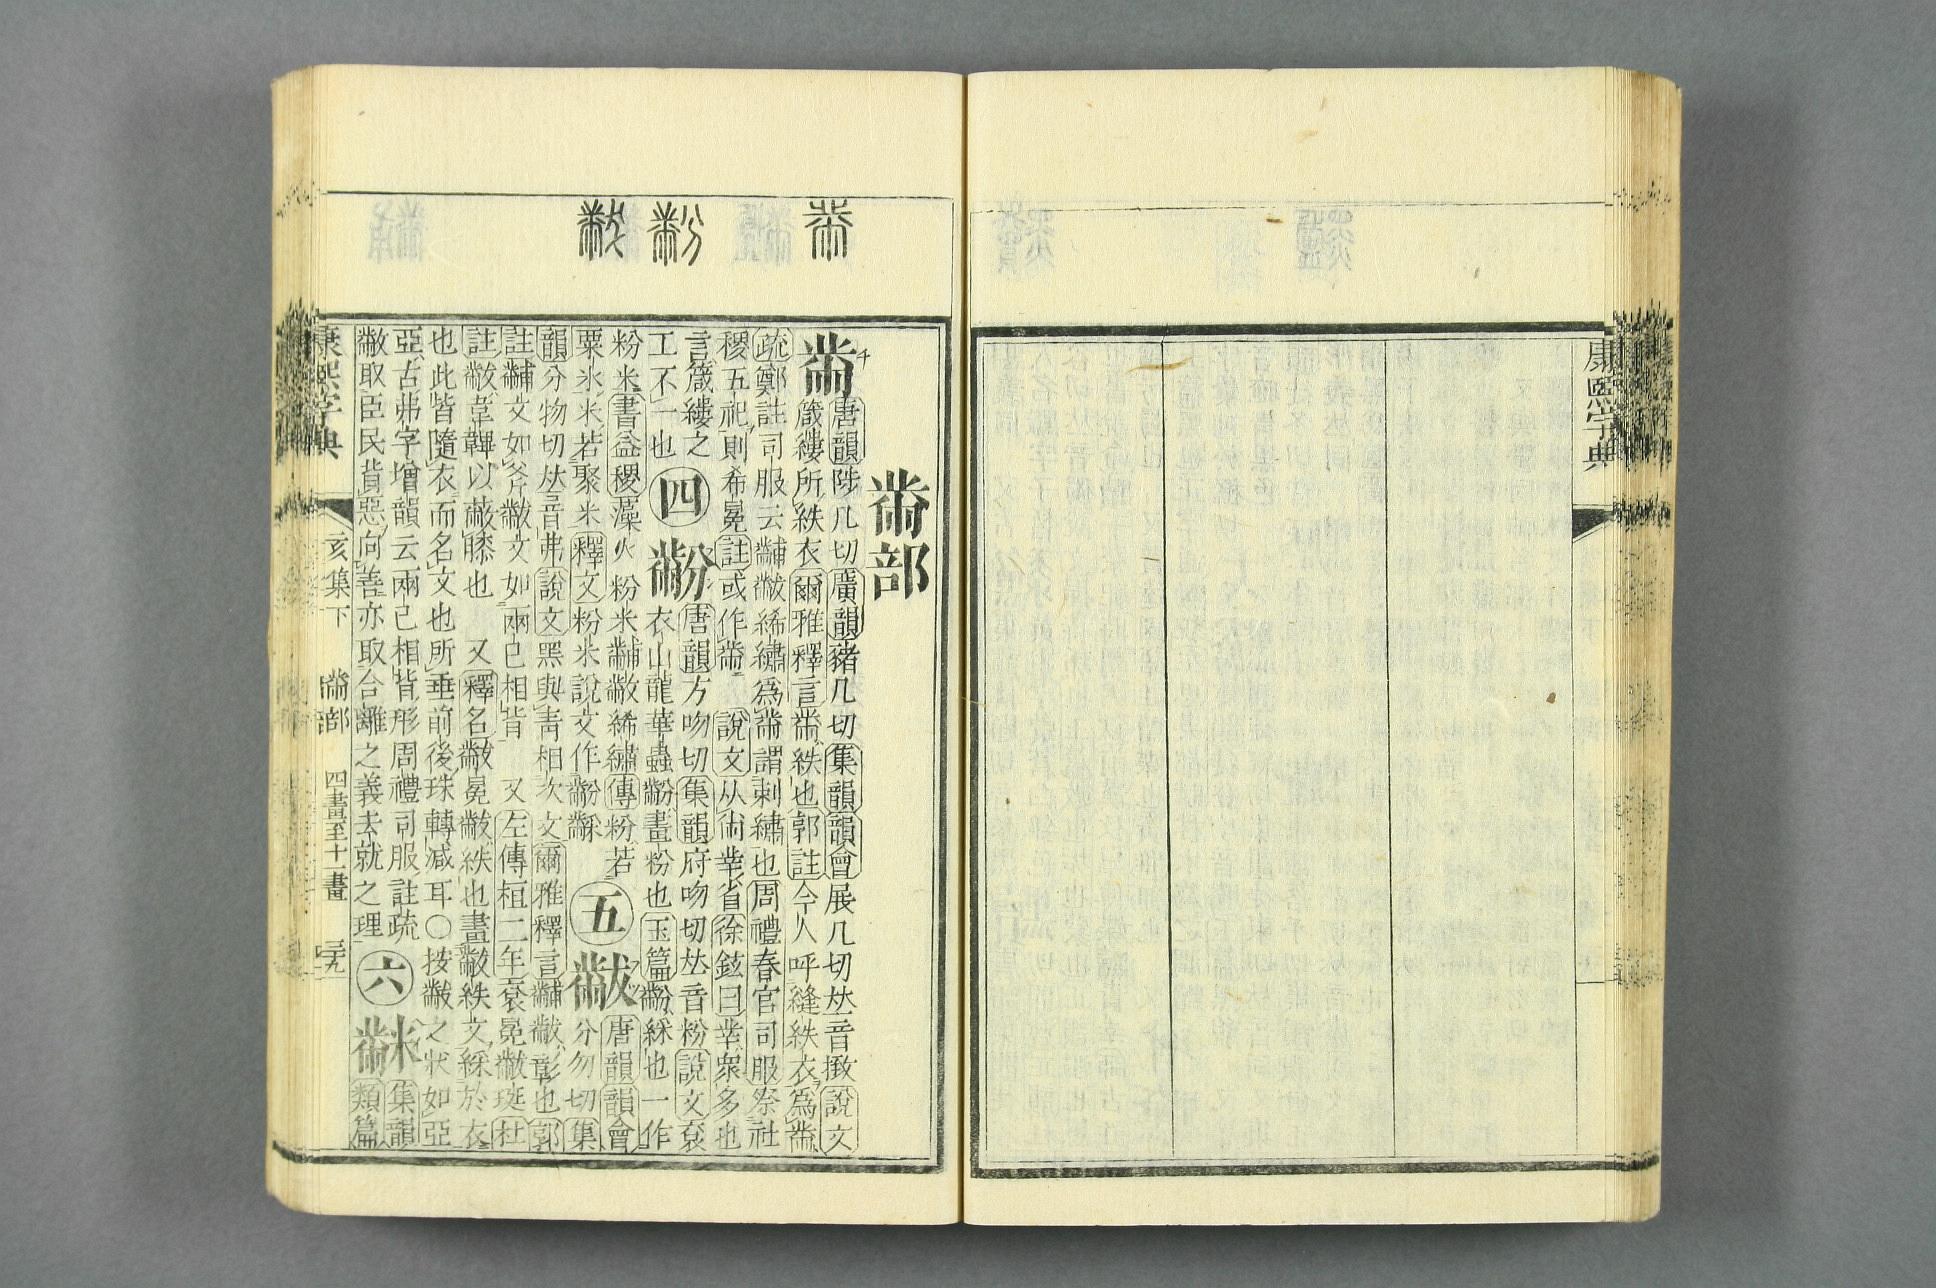 康熙字典
黹部
黹
唐韻陟几切廣韻豬几切集韻韻會展几切𠀤音㨖說文
箴縷所紩衣爾雅釋言黹紩也郭註今人呼縫紩衣爲黹
疏鄭註司服云黼黻絺繡爲黹謂刺繡也周禮春官司服祭社
稷五祀則希冕註或作黹 說文从㡀丵省徐鉉曰丵衆多也
言箴縷之
工不一也
四 黺
唐韻方吻切集韻府吻切𠀤音粉說文袞
衣山龍華蟲黺畫粉也玉篇黺綵也一作
粉米書益稷藻火粉米黼黻絺繡傳粉若
粟氷米若聚米釋文粉米說文作黺
五 黻
唐韻韻會
分勿切集
韻分物切𠀤音弗說文黑與靑相次文爾雅釋言黼黻彰也郭
註黼文如斧黻文如兩己相背 又左傳桓二年袞冕黻珽杜
註黻韋韠以蔽膝也 又釋名黻冕黻紩也畫黻紩文綵於衣
也此皆隨衣而名文也所垂前後珠轉減耳○按黻之狀如亞
亞古弗字增韻云兩己相背形周禮司服註疏
黻取臣民背惡向善亦取合離之義去就之理
六 𪓋
集韻
類篇
康熙字典 亥集下 黹部 四畫至十一畫 三九